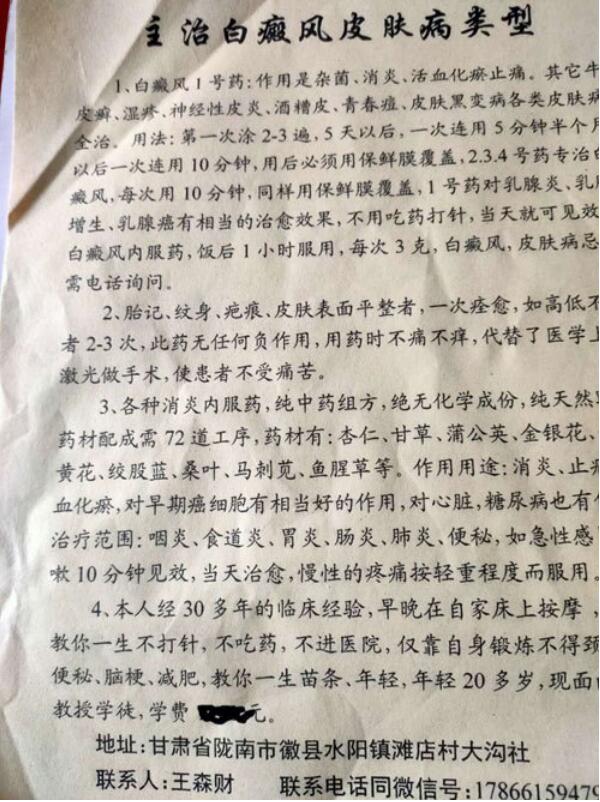 主治白癜风皮肤病类型
1、白癜风1号药:作用是杂菌、消炎、活血化瘀止痛。其它牛
皮癣、湿疹、神经性皮炎、酒糟皮、青春痘、皮肤黑变病各类皮肤病
全治。用法:第一次涂2-3遍,5天以后,一次连用5分钟半个月
以后一次连用10分钟,用后必须用保鲜膜覆盖,2.3.4号药专治白
癜风,每次用10分钟,同样用保鲜膜覆盖,1号药对乳腺炎、乳
增生、乳腺癌有相当的治愈效果,不用吃药打针,当天就可见效
白癜风内服药,饭后1小时服用,每次3克,白癜风,皮肤病忌
需电话询问。
2、胎记、纹身、疤痕、皮肤表面平整者,一次痊愈,如高低不
者2-3次,此药无任何负作用,用药时不痛不痒,代替了医学上
激光做手术,使患者不受痛苦。
3、各种消炎内服药,纯中药组方,绝无化学成份,纯天然
药材配成需72道工序,药材有:杏仁、甘草、蒲公英、金银花、
黄花、绞股蓝、桑叶、马刺苋、鱼腥草等。作用用途:消炎、止
血化瘀,对早期癌细胞有相当好的作用,对心脏,糖尿病也有
治疗范围:咽炎、食道炎、胃炎、肠炎、肺炎、便秘,如急性感
嗽10分钟见效,当天治愈,慢性的疼痛按轻重程度而服用。
4、本人经30多年的临床经验,早晚在自家床上按摩,
教你一生不打针,不吃药,不进医院,仅靠自身锻炼不得颈
便秘、脑梗、减肥,教你一生苗条、年轻,年轻20多岁,现面向
教授学徒,学费元。
地址:甘肃省陇南市徽县水阳镇滩店村大沟社
联系人:王森财 联系电话同微信号:17866159479